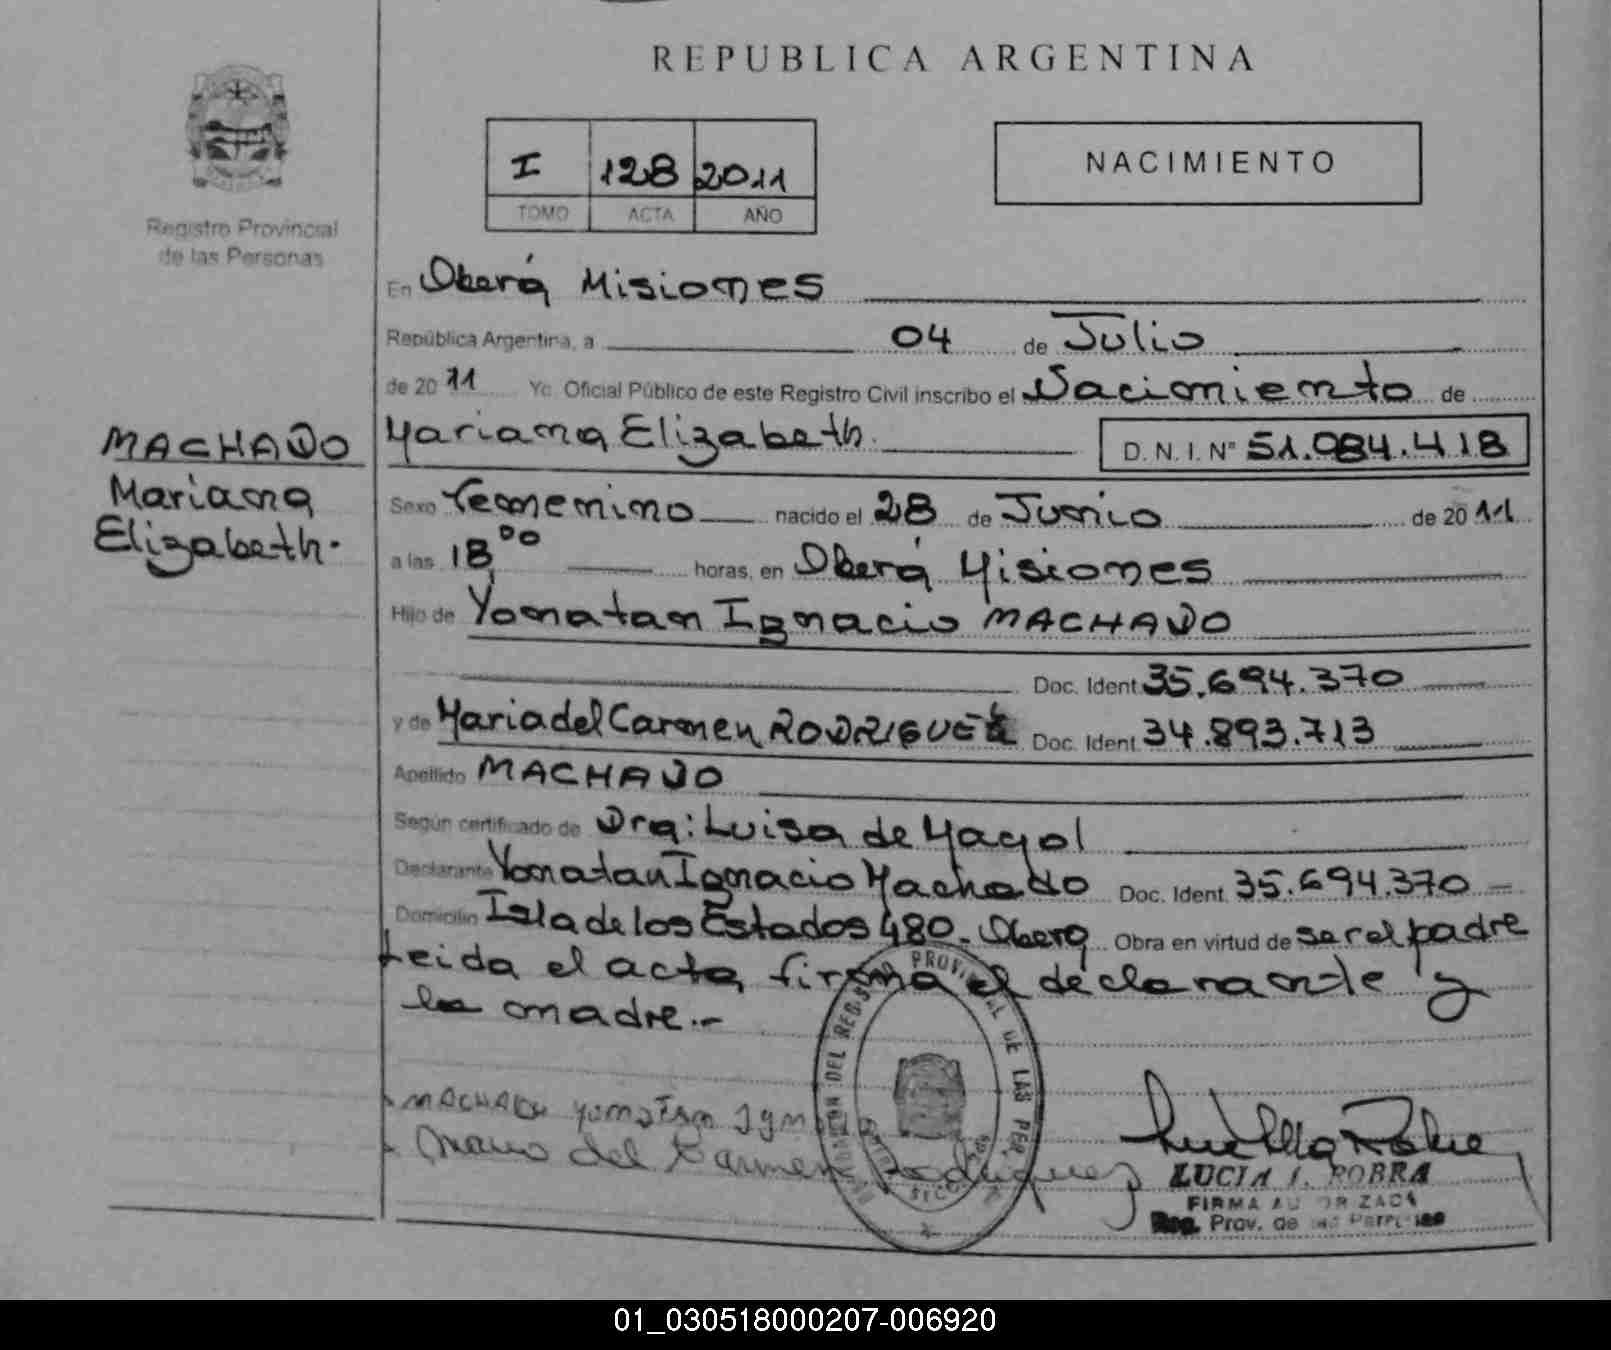 REPUBLICA ARGENTINA
I 128 2011
TOMO ACTA AÑO
NACIMIENTO
Registro Provincial
de las Personas
En Oberá Misiones
República Argentina, a 04 de Julio
de 2011 Yo Oficial Público de este Registro Civil inscribo el Nacimiento de
Mariana Elizabeth. D.N.I. Nº 51.084.418
MACHADO
Mariana
Elizabeth.
Sexo Femenino nacido el 28 de Junio de 2011
a las 18,00 horas, en Oberá Misiones
Hijo de Yonatan Ignacio MACHADO
Doc. Ident. 35.694.370
y de Maria del Carmen RODRIGUEZ Doc. Ident. 34.893.713
Apellido MACHADO
Según certificado de Dra: Luisa de
Declarante Yonatan Ignacio Machado Doc. Ident. 35.694.370
Domicilio Isla de los Estados 480 - Oberá Obra en virtud de ser el padre
Leida el acta, firma el declarante y
la madre.-
MACHADO Yonatan Ign
Maria del Carmen Rodriguez
LUCIA I. ROBRA
FIRMA AUTORIZADA
Reg. Prov. de las Personas
01_030518000207-006920